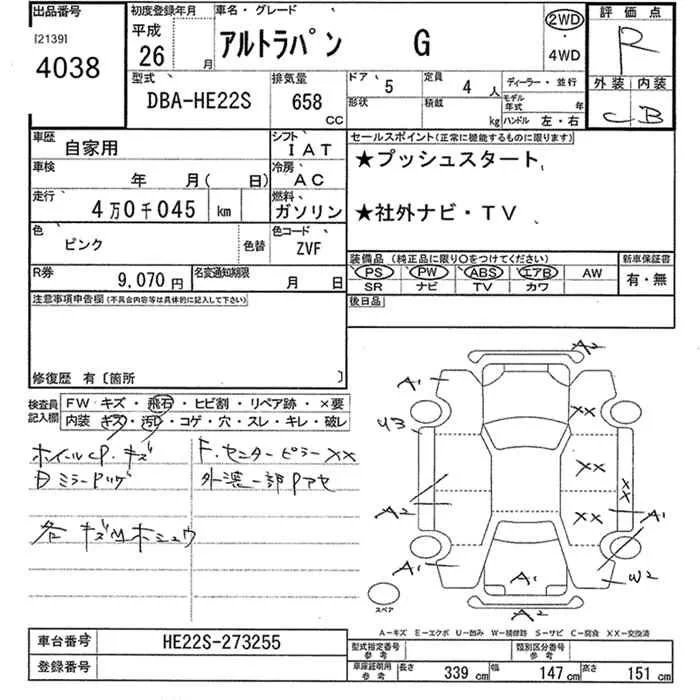 出品番号
[2139]
4038
初度登録年月
平成
26 月
車名・グレード
アルトラパン G
2WD
・
4WD
評価点
R
外装 内装
C B
型式
DBA-HE22S
排気量
658 CC
ドア 5
定員 4 人
形状
積載 kg
ディーラー・並行
モデル年式 年
ハンドル 左・右
車歴 自家用
シフト IAT
車検 年 月( 日)
冷房 AC
走行 4万0千045 km
燃料 ガソリン
色 ピンク
色替
色コード ZVF
R券 9,070円
名変通知期限 月 日
セールスポイント(正常に機能するものに限ります)
★プッシュスタート
★社外ナビ・TV
装備品 (純正品に限り○をつけてください)
PS PW ABS エアB AW
SR ナビ TV カワ
新車保証書
有・無
後日品
注意事項申告欄(不具合内容等は具体的に記入して下さい)
修復歴 有〔箇所 〕
検査員記入欄
FW キズ・飛石・ヒビ割・リペア跡・×要
内装 キズ・汚レ・コゲ・穴・スレ・キレ・破レ
ホイールCP.キズ
F.センターピラーXX
外装一部Pアセ
A2
A1
U3
XX
XX
XX
XX
A2
A1
A1
A1
W2
A2
スペア
A-キズ E-エクボ U-凹み W-補修跡 S-サビ C-腐食 XX-交換済
車台番号 HE22S-273255
登録番号
型式指定番号 参考
類別区分番号 参考
車庫証明用 参考
長さ 339 cm
幅 147 cm
高さ 151 cm